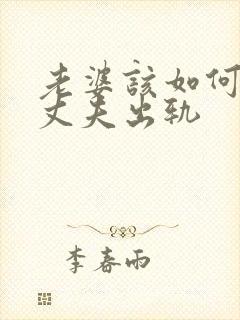 老婆該如何
丈夫出轨
李春雨